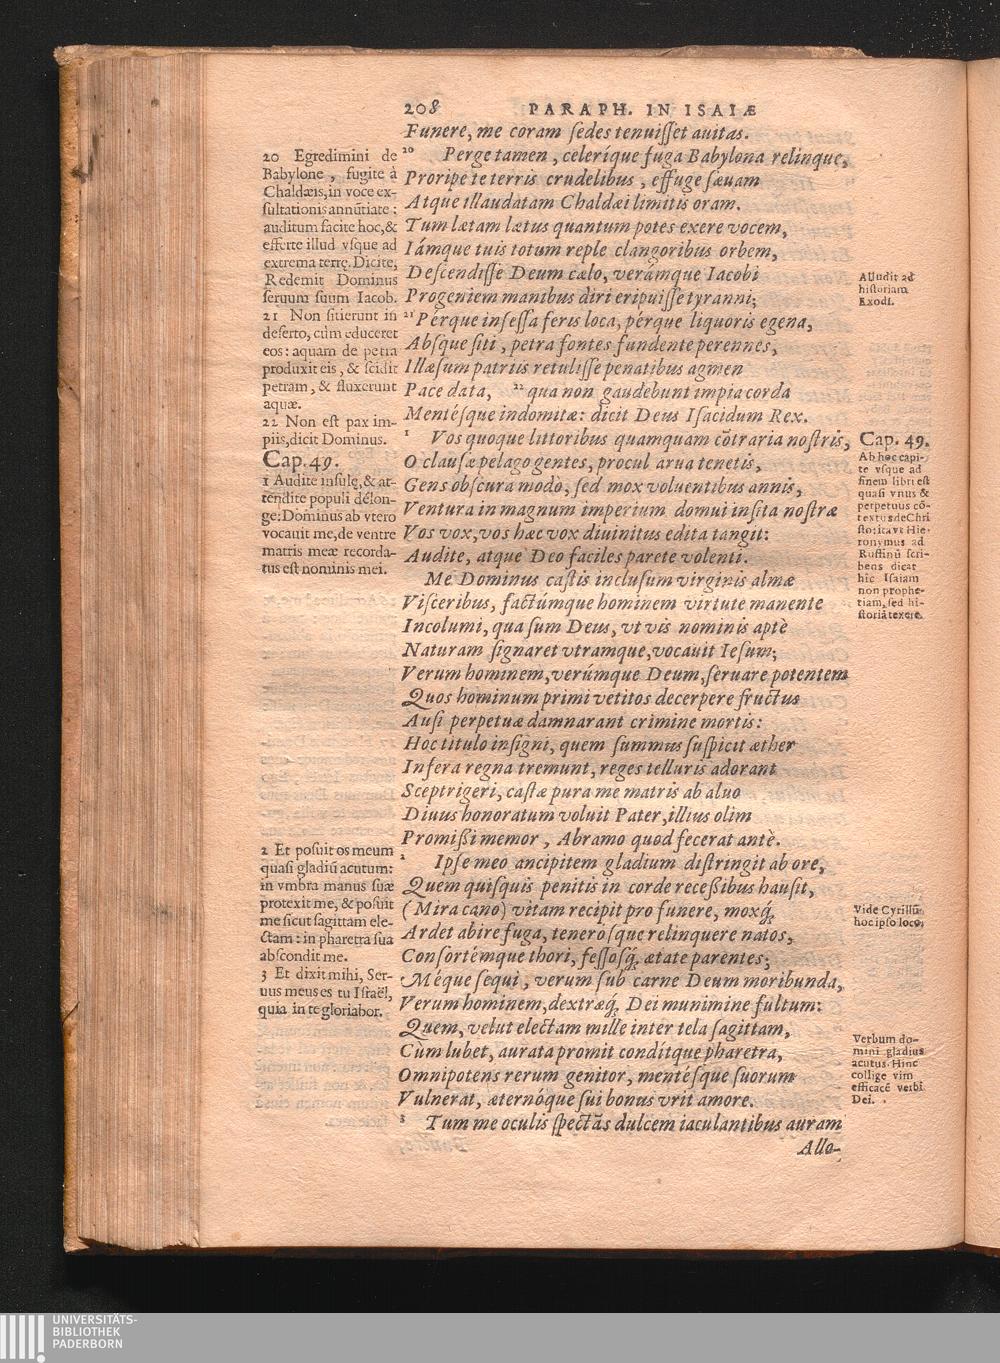 208 PARAPH. IN ISAIÆ
Funere, me coram ſedes tenuiſſet auitas.
²⁰ Perge tamen, celeríque fuga Babylona relinque,
Proripe te terris crudelibus, effuge ſæuam
Atque illaudatam Chaldæi limitis oram.
Tum lætam lætus quantum potes exere vocem,
Iámque tuis totum reple clangoribus orbem,
Deſcendiſſe Deum cælo, verámque Iacobi
Progeniem manibus diri eripuiſſe tyranni;
²¹ Pérque inſeſſa feris loca, pérque liquoris egena,
Abſque ſiti, petra fontes fundente perennes,
Illæſum patriis retuliſſe penatibus agmen
Pace data, ²² qua non gaudebunt impia corda
Mentéſque indomitæ: dicit Deus Iſacidum Rex.
¹ Vos quoque littoribus quamquam cõtraria noſtris,
O clauſæ pelago gentes, procul arua tenetis,
Gens obſcura modò, ſed mox voluentibus annis,
Ventura in magnum imperium domui inſita noſtræ
Vos vox, vos hæc vox diuinitus edita tangit:
Audite, atque Deo faciles parete volenti.
Me Dominus caſtis incluſum virginis almæ
Viſceribus, factúmque hominem virtute manente
Incolumi, qua ſum Deus, vt vis nominis aptè
Naturam ſignaret vtramque, vocauit Ieſum;
Verum hominem, verúmque Deum, ſeruare potentem
Quos hominum primi vetitos decerpere fructus
Auſi perpetuæ damnarant crimine mortis:
Hoc titulo inſigni, quem ſummus ſuſpicit æther
Infera regna tremunt, reges telluris adorant
Sceptrigeri, caſtæ pura me matris ab aluo
Diuus honoratum voluit Pater, illius olim
Promißi memor, Abramo quod fecerat antè.
² Ipſe meo ancipitem gladium diſtringit ab ore,
Quem quiſquis penitis in corde receßibus hauſit,
(Mira cano) vitam recipit pro funere, moxq́;
Ardet abire fuga, teneróſque relinquere natos,
Conſortémque thori, feſſoſq́; ætate parentes;
Méque ſequi, verum ſub carne Deum moribunda,
Verum hominem, dextræq́; Dei munimine fultum:
Quem, velut electam mille inter tela ſagittam,
Cùm lubet, aurata promit condítque pharetra,
Omnipotens rerum genitor, mentéſque ſuorum
Vulnerat, æternóque ſui bonus vrit amore.
³ Tum me oculis ſpectãs dulcem iaculantibus auram
Allo-
20 Egredimini de
Babylone, fugite à
Chaldæis, in voce ex-
ſultationis annũtiate:
auditum facite hoc, &
efferte illud vſque ad
extrema terrę. Dicite,
Redemit Dominus
ſeruum ſuum Iacob.
21 Non ſitierunt in
deſerto, cùm educeret
eos: aquam de petra
produxit eis, & ſcidit
petram, & fluxerunt
aquæ.
22 Non eſt pax im-
piis, dicit Dominus.
Cap. 49.
1 Audite inſulę, & at-
tendite populi délon-
ge: Dominus ab vtero
vocauit me, de ventre
matris meæ recorda-
tus eſt nominis mei.
2 Et poſuit os meum
quaſi gladiũ acutum:
in vmbra manus ſuæ
protexit me, & poſuit
me ſicut ſagittam ele-
ctam: in pharetra ſua
abſcondit me.
3 Et dixit mihi, Ser-
uus meus es tu Iſraël,
quia in te gloriabor.
Alludit ad
hiſtoriam
Exodi.
Cap. 49.
Ab hoc capi-
te vſque ad
finem libri eſt
quaſi vnus &
perpetuus cõ-
textus de Chri
ſto: ita vt Hie-
ronymus ad
Ruffinũ ſcri-
bens dicat
hîc Iſaiam
non prophe-
tiam, ſed hi-
ſtoriã texere.
Vide Cyrillũ
hoc ipſo loco.
Verbum do-
mini gladius
acutus. Hinc
collige vim
efficacẽ verbi
Dei.
UNIVERSITÄTS-
BIBLIOTHEK
PADERBORN